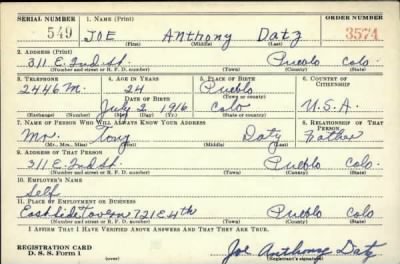 SERIAL NUMBER 1. NAME (Print) ORDER NUMBER
549 JOE Anthony Datz 3574
(First) (Middle) (Last)
2. ADDRESS (Print)
311 E. 2nd St. Pueblo Colo.
(Number and street or R. F. D. number) (Town) (County) (State)
3. TELEPHONE 4. AGE IN YEARS 5. PLACE OF BIRTH 6. COUNTRY OF CITIZENSHIP
2446 M. 24 Pueblo
DATE OF BIRTH (Town or county)
July 2, 1916 Colo U.S.A.
(Exchange) (Number) (Mo.) (Day) (Yr.) (State or country)
7. NAME OF PERSON WHO WILL ALWAYS KNOW YOUR ADDRESS 8. RELATIONSHIP OF THAT PERSON
Mr. Tony Datz Father
(Mr., Mrs., Miss) (First) (Middle) (Last)
9. ADDRESS OF THAT PERSON
311 E. 2nd St. Pueblo Colo.
(Number and street or R. F. D. number) (Town) (County) (State)
10. EMPLOYER'S NAME
Self
11. PLACE OF EMPLOYMENT OR BUSINESS
East Side Tavern 721 E 4th Pueblo Colo.
(Number and street or R. F. D. number) (Town) (County) (State)
I AFFIRM THAT I HAVE VERIFIED ABOVE ANSWERS AND THAT THEY ARE TRUE.
REGISTRATION CARD
D. S. S. Form 1 (over) Joe Anthony Datz
(Registrant's signature)